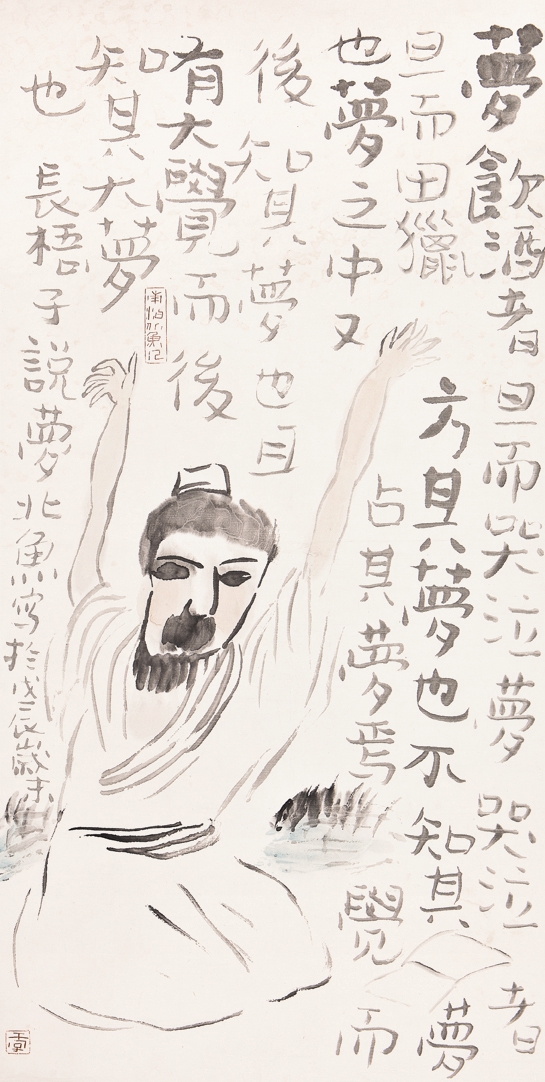 夢飲酒者旦而哭泣夢哭泣者
旦而田獵方其夢也不知其夢
也夢之中又占其夢焉覺而
後知其夢也且
唷大覺而後
知其大夢
也長梧子說夢北魚寫於戊辰歲末